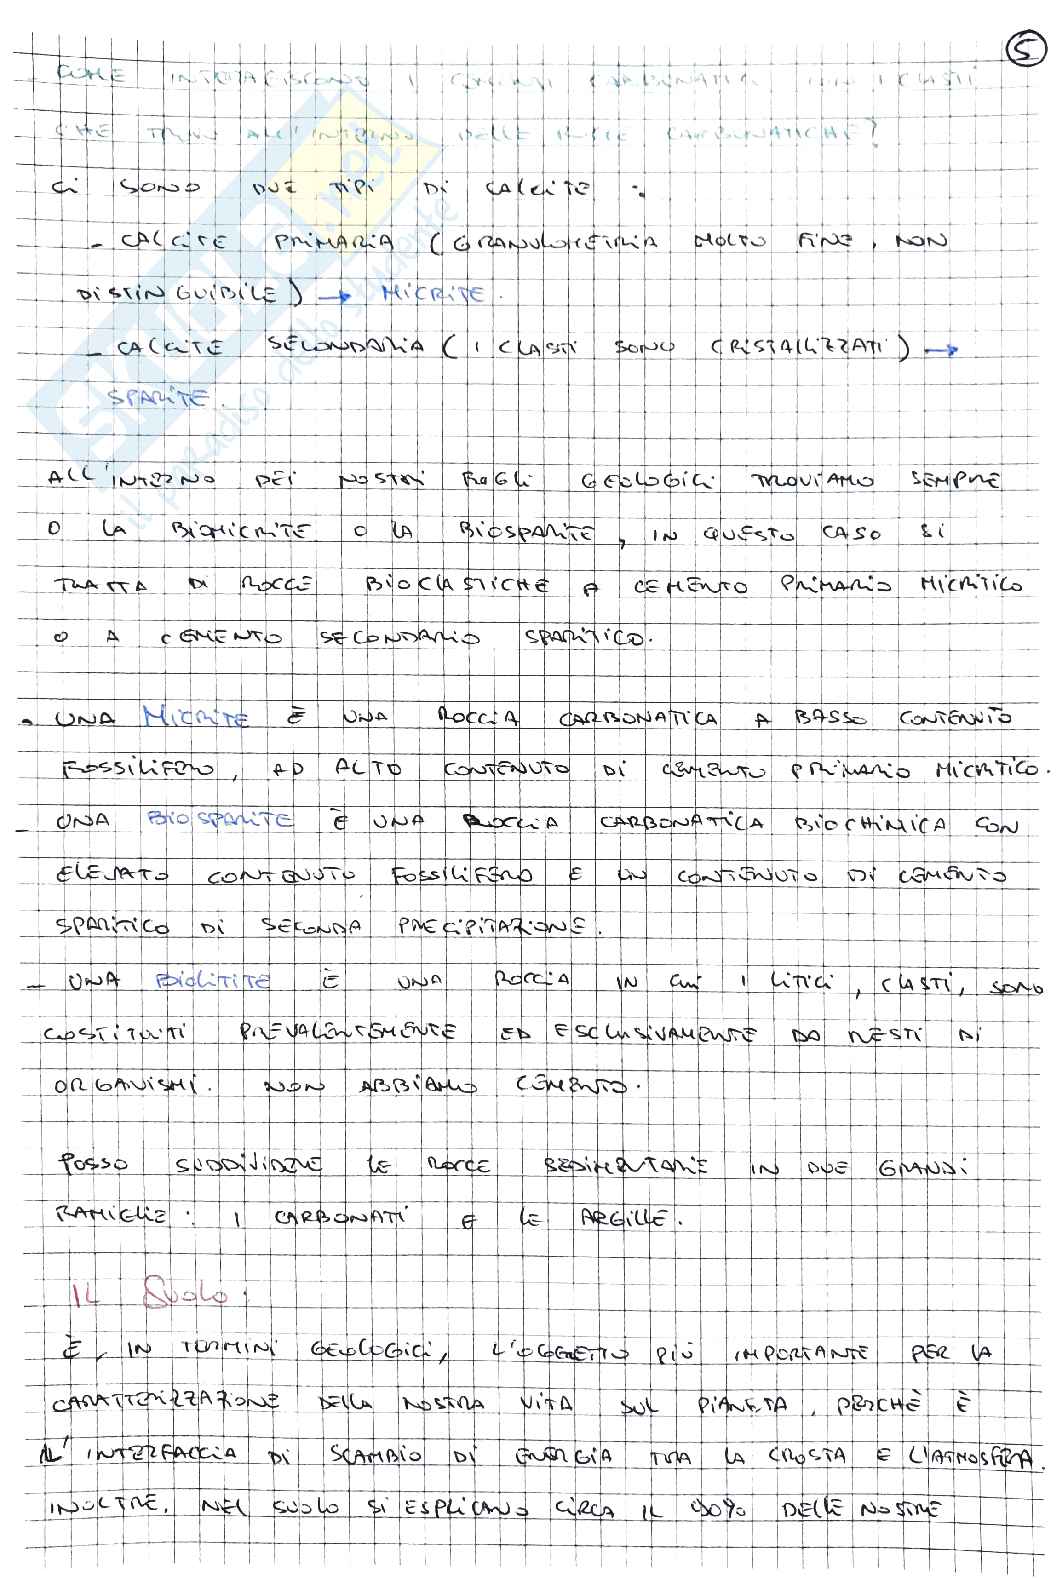 5
COME INTERAGISCONO I CEMENTI CARBONATICI CON I CLASTI
CHE TROVO ALL'INTERNO DELLE ROCCE CARBONATICHE?
CI SONO DUE TIPI DI CALCITE :
- CALCITE PRIMARIA (GRANULOMETRIA MOLTO FINE, NON
DISTINGUIBILE) → MICRITE.
- CALCITE SECONDARIA (I CLASTI SONO CRISTALLIZZATI) →
SPARITE.
ALL'INTERNO DEI NOSTRI FOGLI GEOLOGICI TROVIAMO SEMPRE
O LA BIOMICRITE O LA BIOSPARITE, IN QUESTO CASO SI
TRATTA DI ROCCE BIOCLASTICHE A CEMENTO PRIMARIO MICRITICO
O A CEMENTO SECONDARIO SPARITICO.
- UNA MICRITE È UNA ROCCIA CARBONATICA A BASSO CONTENUTO
FOSSILIFERO, AD ALTO CONTENUTO DI CEMENTO PRIMARIO MICRITICO.
- UNA BIOSPARITE È UNA ROCCIA CARBONATICA BIOCHIMICA CON
ELEVATO CONTENUTO FOSSILIFERO E UN CONTENUTO DI CEMENTO
SPARITICO DI SECONDA PRECIPITAZIONE.
- UNA BIOLITITE È UNA ROCCIA IN CUI I LITICI, CLASTI, SONO
COSTITUITI PREVALENTEMENTE ED ESCLUSIVAMENTE DA RESTI DI
ORGANISMI. NON ABBIAMO CEMENTO.
POSSO SUDDIVIDERE LE ROCCE SEDIMENTARIE IN DUE GRANDI
FAMIGLIE: I CARBONATI E LE ARGILLE.
IL SUOLO:
È, IN TERMINI GEOLOGICI, L'OGGETTO PIÙ IMPORTANTE PER LA
CARATTERIZZAZIONE DELLA NOSTRA VITA SUL PIANETA, PERCHÈ È
L'INTERFACCIA DI SCAMBIO DI ENERGIA TRA LA CROSTA E L'ATMOSFERA.
INOLTRE, NEL SUOLO SI ESPLICANO CIRCA IL 90% DELLE NOSTRE
skuola.net
il paradiso dello studente